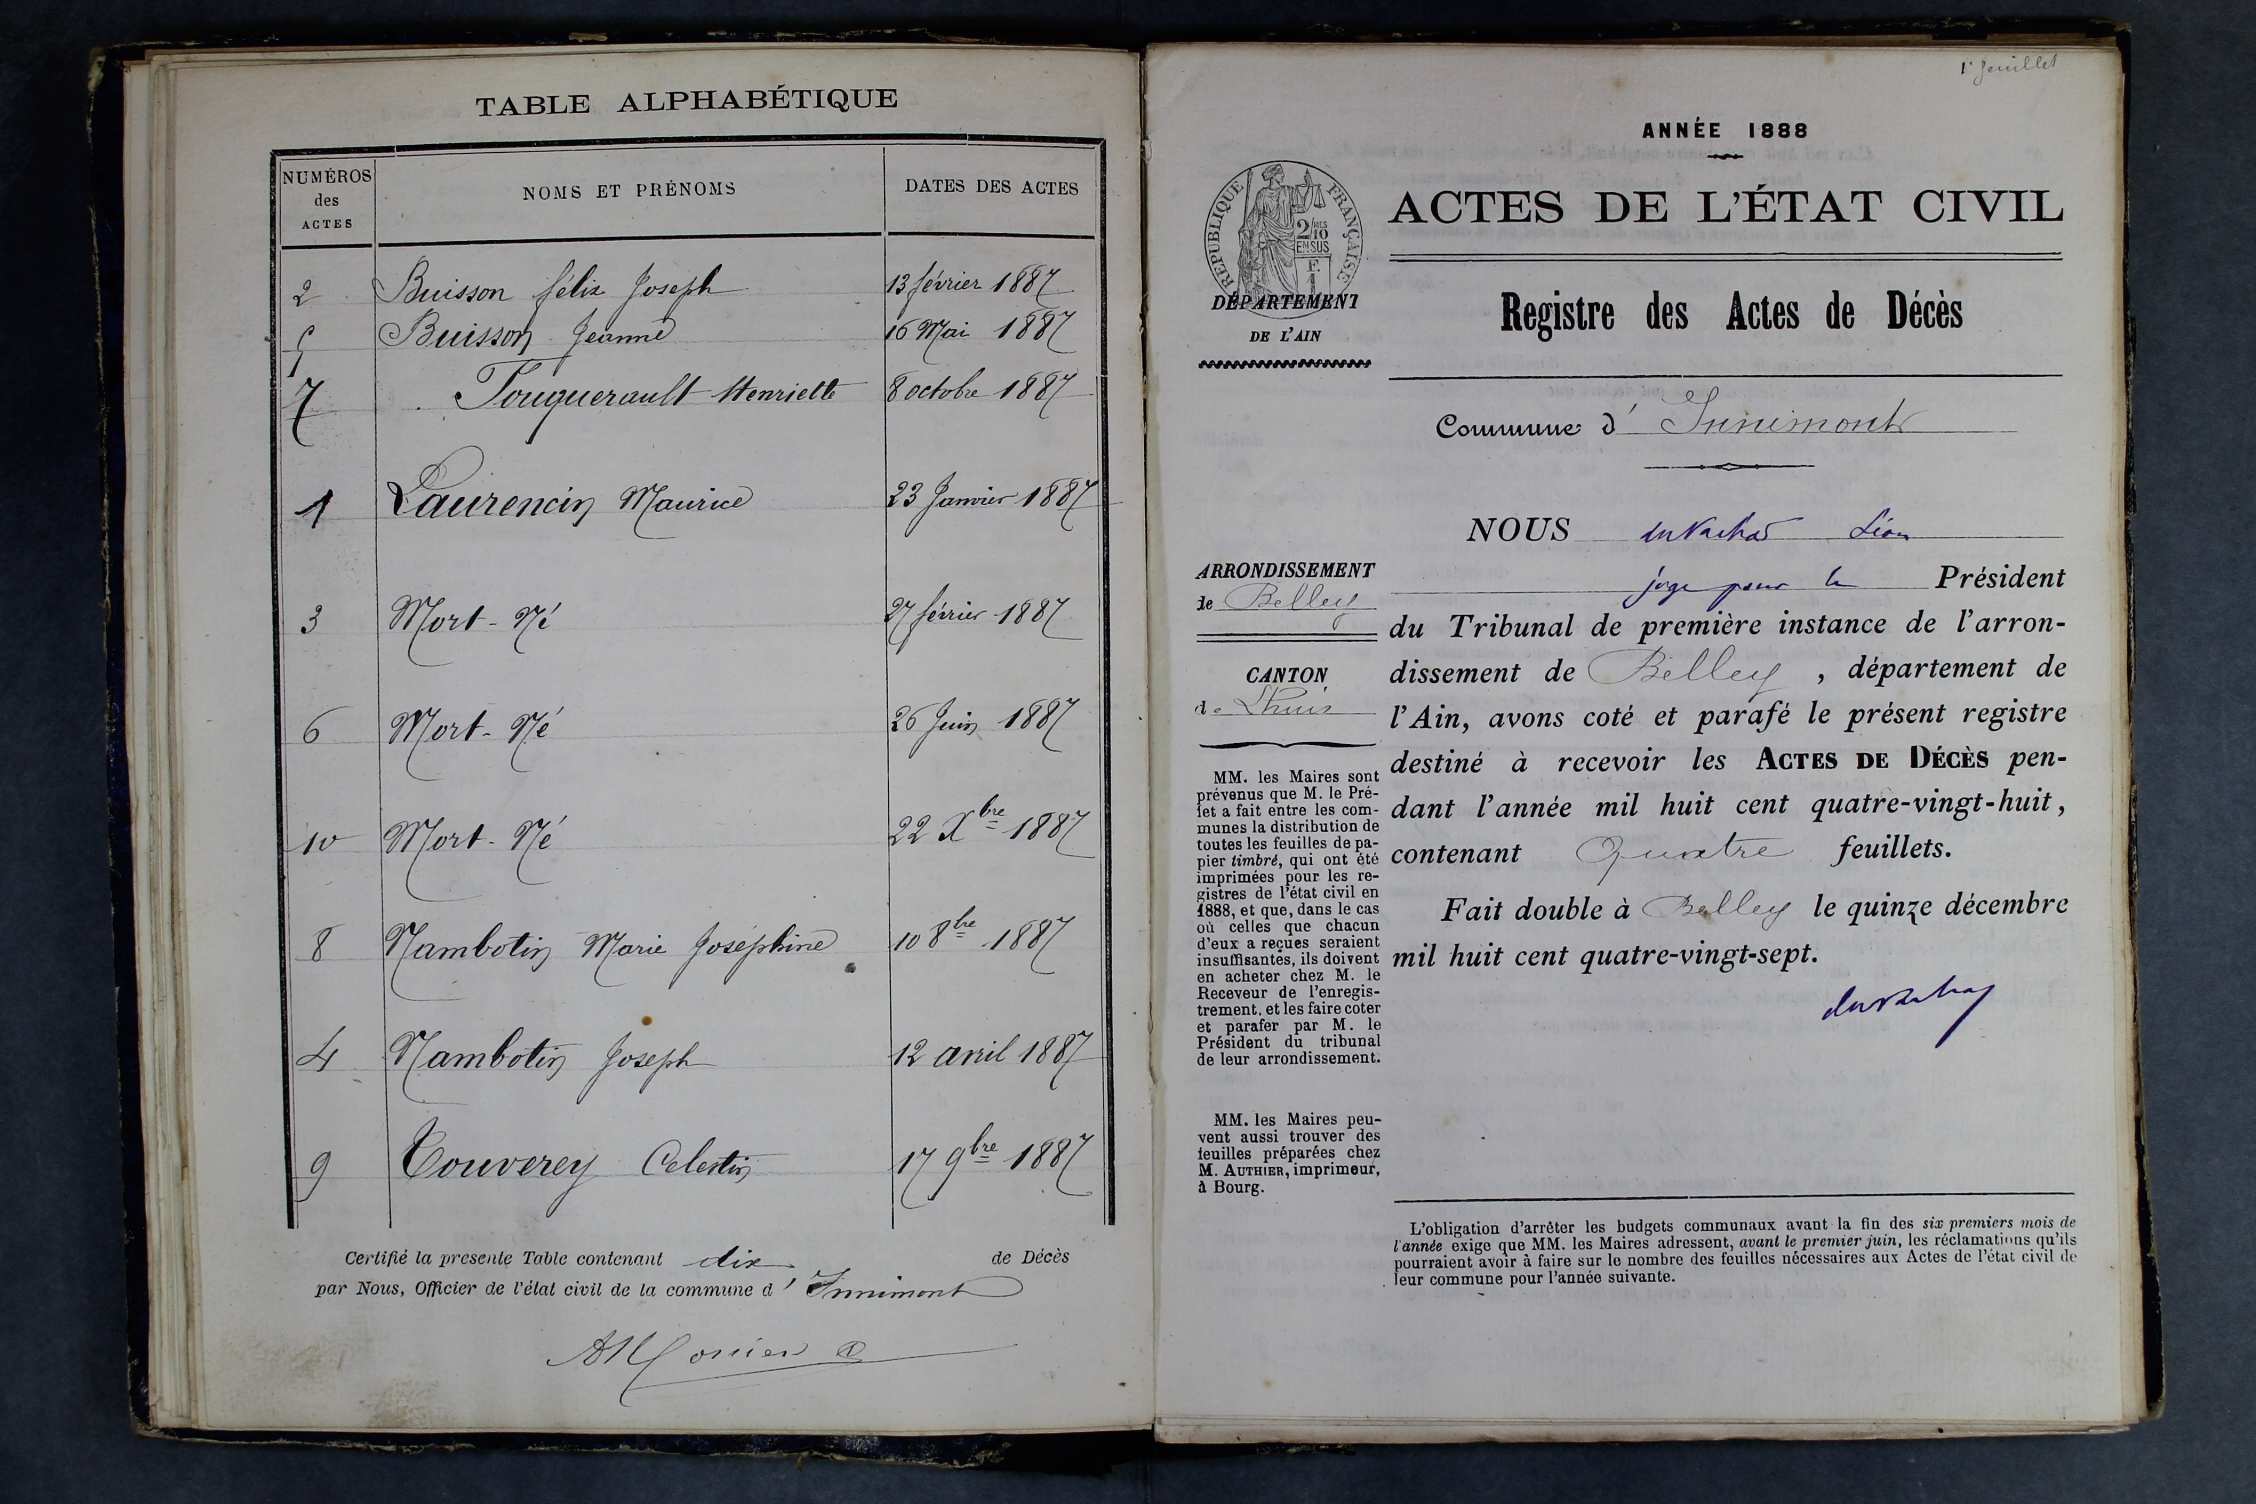 TABLE ALPHABÉTIQUE
NUMÉROS
des
ACTES
NOMS ET PRÉNOMS
DATES DES ACTES
2 Buisson félix Joseph 13 février 1887
5 Buisson Jeanne 16 Mai 1887
7 Fouquerault Henriette 8 octobre 1887
1 Laurencin Maurice 23 Janvier 1887
3 Mort-Né 27 février 1887
6 Mort-Né 26 Juin 1887
10 Mort-Né 22 Xbre 1887
8 Nambotin Marie Joséphine 10 8bre 1887
4 Nambotin Joseph 12 avril 1887
9 Touverey Celestin 17 9bre 1887
Certifié la presente Table contenant dix de Décès
par Nous, Officier de l'état civil de la commune d' Innimont
1er feuillet
ANNÉE 1888
RÉPUBLIQUE FRANÇAISE
2/10 EN SUS
DÉPARTEMENT
DE L'AIN
ACTES DE L'ÉTAT CIVIL
Registre des Actes de Décès
Commune d' Innimont
ARRONDISSEMENT
de Belley
CANTON
de Lhuis
MM. les Maires sont
prévenus que M. le Pré-
fet a fait entre les com-
munes la distribution de
toutes les feuilles de pa-
pier timbré, qui ont été
imprimées pour les re-
gistres de l'état civil en
1888, et que, dans le cas
où celles que chacun
d'eux a reçues seraient
insuffisantes, ils doivent
en acheter chez M. le
Receveur de l'enregis-
trement, et les faire coter
et parafer par M. le
Président du tribunal
de leur arrondissement.
MM. les Maires peu-
vent aussi trouver des
feuilles préparées chez
M. AUTHIER, imprimeur,
à Bourg.
NOUS Léon
juge pour le Président
du Tribunal de première instance de l'arron-
dissement de Belley, département de
l'Ain, avons coté et parafé le présent registre
destiné à recevoir les ACTES DE DÉCÈS pen-
dant l'année mil huit cent quatre-vingt-huit,
contenant Quatre feuillets.
Fait double à Belley le quinze décembre
mil huit cent quatre-vingt-sept.
L'obligation d'arrêter les budgets communaux avant la fin des six premiers mois de
l'année exige que MM. les Maires adressent, avant le premier juin, les réclamations qu'ils
pourraient avoir à faire sur le nombre des feuilles nécessaires aux Actes de l'état civil de
leur commune pour l'année suivante.